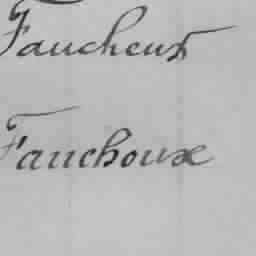 Faucheux
Fauchoux